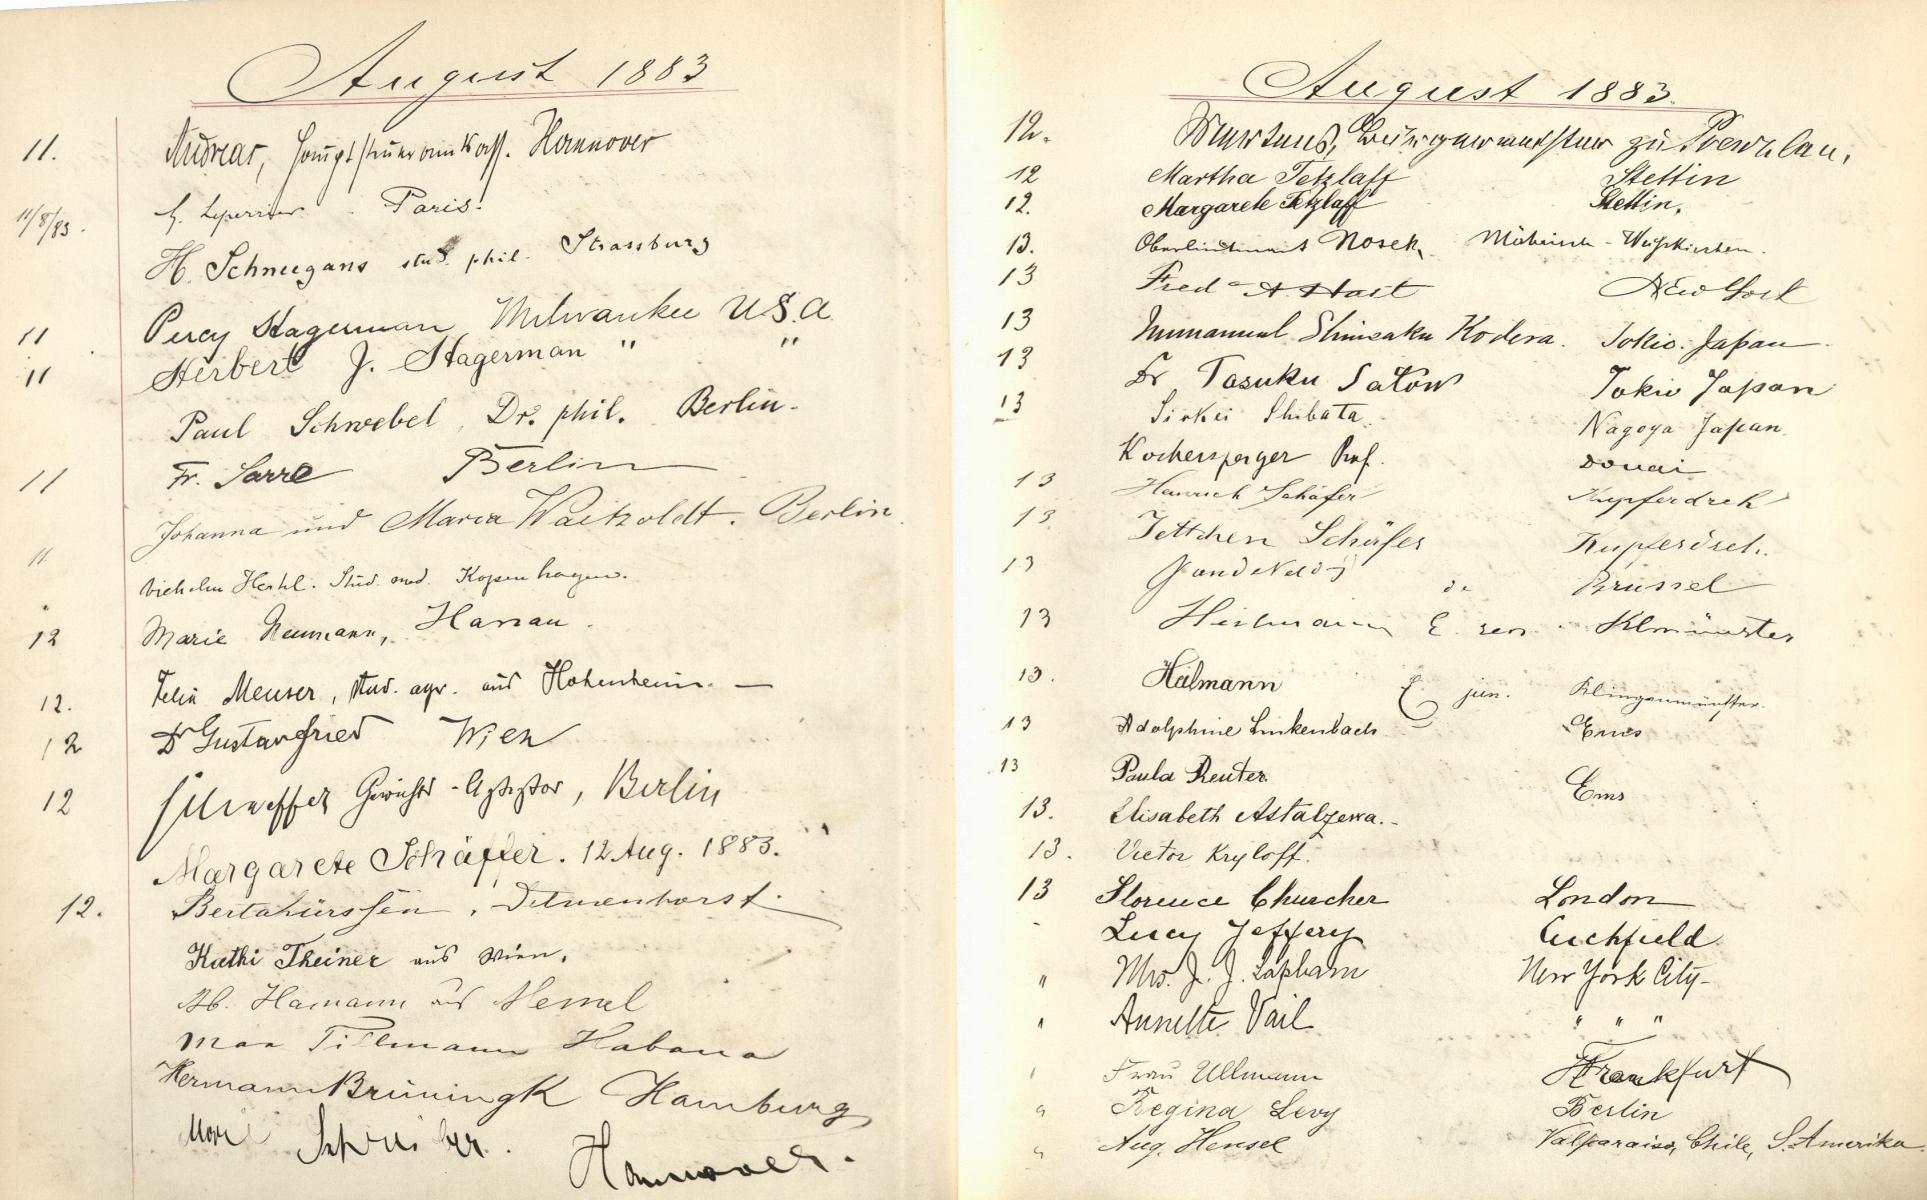 August 1883
11. Andreas, Hannover
11/8/83. Paris.
H. Schneegans stud. phil. Strassburg
11 Percy Stagerman Milwaukee U.S.A.
11 Herbert J. Stagerman " "
Paul Schwebel, Dr. phil. Berlin.
11 Fr. Sarre Berlin
Johanna und Maria Waitzoldt. Berlin.
11 Stud. med. Kopenhagen.
12 Marie Neumann, Hanau.
12. Felix Meuser, stud. agr. aus Hohenheim. —
12 Dr Gustav Fried Wien
12 Schaeffer Gerichts-Assessor, Berlin
Margarete Schäffer. 12 Aug. 1883.
12. Berta Lürssen, Delmenhorst.
Kathi Theiner aus Wien.
Hamann aus
Max Tillmann Habana
Hermann Brüningk Hamburg
Schreiber. Hannover.
August 1883.
12. Martens, zu Prenzlau.
12 Martha Tetzlaff Stettin
12. Margarete Tetzlaff Stettin.
13. Oberlieutenant Nosek, Mährisch-Weisskirchen.
13 Fred A Hait New York
13 Immanuel Shinsaku Kodera. Tokio. Japan.
13 Dr Tasuku Satow Tokio Japan
13 Shibata. Nagoya Japan.
Kochersperger Prof. Douai
13 Heinrich Schäfer Kupferdreh
13. Jettchen Schäfer Kupferdreh.
13 de Brussel
13 Heilmann E. sen. Klmünster
13. Heilmann E. jun. Klingenmünster.
13 Adolphine Linkenbach Ems
13 Paula Reuter Ems
13. Elisabeth Astalzewa.-
13. Victor Kryloff.
13 Florence Churcher London
- Lucy Jeffery Cuchfield.
" Mrs. J. J. Lapham New York City-
" Annette Vail " " "
" Frau Ullmann Frankfurt
" Regina Levy Berlin
" Aug. Hensel Valparaiso, Chile, S. Amerika.